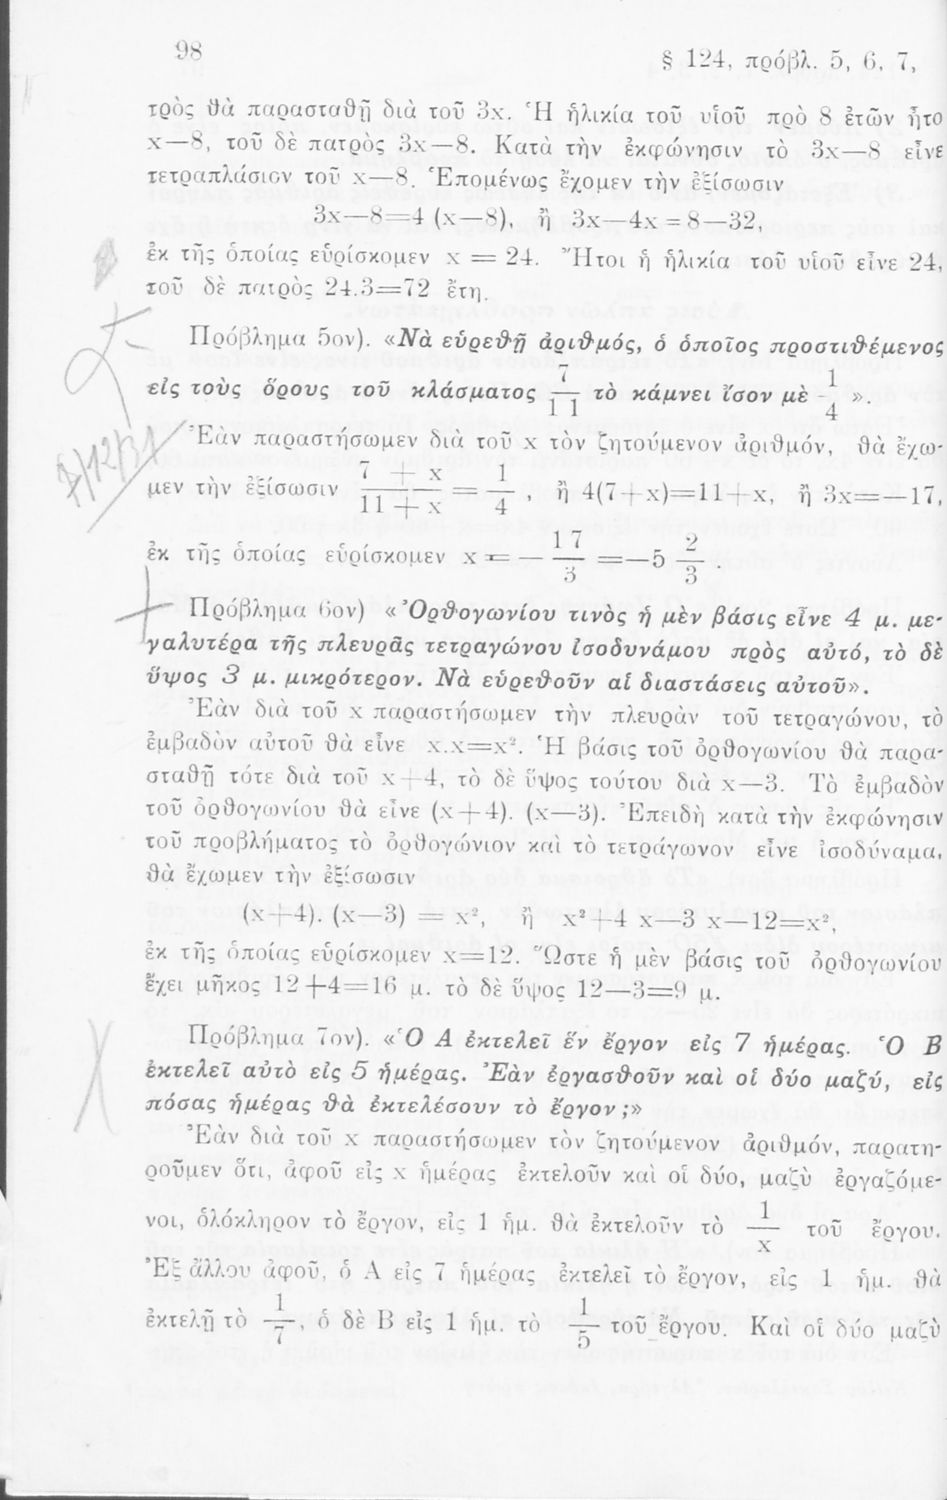 98
§ 124, πρόβλ. 5, 6, 7,
τρὸς θὰ παρασταθῇ διὰ τοῦ 3x. Ἡ ἡλικία τοῦ υἱοῦ πρὸ 8 ἐτῶν ἦτο
x—8, τοῦ δὲ πατρὸς 3x—8. Κατὰ τὴν ἐκφώνησιν τὸ 3x—8 εἶνε
τετραπλάσιον τοῦ x—8. Ἑπομένως ἔχομεν τὴν ἐξίσωσιν
3x—8=4 (x—8), ἢ 3x—4x=8—32,
ἐκ τῆς ὁποίας εὑρίσκομεν x = 24. Ἤτοι ἡ ἡλικία τοῦ υἱοῦ εἶνε 24,
τοῦ δὲ πατρὸς 24.3=72 ἔτη.
Πρόβλημα 5ον). «Νὰ εὑρεθῇ ἀριθμός, ὁ ὁποῖος προστιθέμενος
εἰς τοὺς ὅρους τοῦ κλάσματος 7/11 τὸ κάμνει ἴσον μὲ 1/4 ».
7/12/31
Ἐὰν παραστήσωμεν διὰ τοῦ x τὸν ζητούμενον ἀριθμόν, θὰ ἔχω-
μεν τὴν ἐξίσωσιν (7+x)/(11+x) = 1/4 , ἢ 4(7+x)=11+x, ἢ 3x=—17,
ἐκ τῆς ὁποίας εὑρίσκομεν x = — 17/3 = —5 2/3 .
Πρόβλημα 6ον) «Ὀρθογωνίου τινὸς ἡ μὲν βάσις εἶνε 4 μ. με-
γαλυτέρα τῆς πλευρᾶς τετραγώνου ἰσοδυνάμου πρὸς αὐτό, τὸ δὲ
ὕψος 3 μ. μικρότερον. Νὰ εὑρεθοῦν αἱ διαστάσεις αὐτοῦ».
Ἐὰν διὰ τοῦ x παραστήσωμεν τὴν πλευρὰν τοῦ τετραγώνου, τὸ
ἐμβαδὸν αὐτοῦ θὰ εἶνε x.x=x². Ἡ βάσις τοῦ ὀρθογωνίου θὰ παρα-
σταθῇ τότε διὰ τοῦ x+4, τὸ δὲ ὕψος τούτου διὰ x—3. Τὸ ἐμβαδὸν
τοῦ ὀρθογωνίου θὰ εἶνε (x+4). (x—3). Ἐπειδὴ κατὰ τὴν ἐκφώνησιν
τοῦ προβλήματος τὸ ὀρθογώνιον καὶ τὸ τετράγωνον εἶνε ἰσοδύναμα,
θὰ ἔχωμεν τὴν ἐξίσωσιν
(x+4). (x—3) = x², ἢ x²+4 x—3 x—12=x²,
ἐκ τῆς ὁποίας εὑρίσκομεν x=12. Ὥστε ἡ μὲν βάσις τοῦ ὀρθογωνίου
ἔχει μῆκος 12+4=16 μ. τὸ δὲ ὕψος 12—3=9 μ.
Πρόβλημα 7ον). «Ὁ Α ἐκτελεῖ ἓν ἔργον εἰς 7 ἡμέρας. Ὁ Β
ἐκτελεῖ αὐτὸ εἰς 5 ἡμέρας. Ἐὰν ἐργασθοῦν καὶ οἱ δύο μαζύ, εἰς
πόσας ἡμέρας θὰ ἐκτελέσουν τὸ ἔργον ;»
Ἐὰν διὰ τοῦ x παραστήσωμεν τὸν ζητούμενον ἀριθμόν, παρατη-
ροῦμεν ὅτι, ἀφοῦ εἰς x ἡμέρας ἐκτελοῦν καὶ οἱ δύο, μαζὺ ἐργαζόμε-
νοι, ὁλόκληρον τὸ ἔργον, εἰς 1 ἡμ. θὰ ἐκτελοῦν τὸ 1/x τοῦ ἔργου.
Ἐξ ἄλλου ἀφοῦ, ὁ Α εἰς 7 ἡμέρας ἐκτελεῖ τὸ ἔργον, εἰς 1 ἡμ. θὰ
ἐκτελῇ τὸ 1/7, ὁ δὲ Β εἰς 1 ἡμ. τὸ 1/5 τοῦ ἔργου. Καὶ οἱ δύο μαζὺ